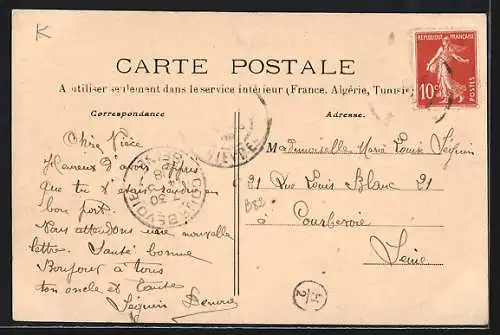 K
RÉPUBLIQUE FRANÇAISE
10c
POSTES
CARTE POSTALE
A utiliser seulement dans le service intérieur (France, Algérie, Tunisie
Correspondance
Adresse.
Chère Nièce
Heureux d'avoir appris
que tu
bon port.
Nous attendons une nouvelle
lettre. Santé bonne
Bonjour à tous
ton oncle et tante
Séguin
Mademoiselle Marie Louise Séguin
21 Rue Louis Blanc 21
B82
à Courbevoie
Seine
COURBEVOIE
7 30
NIÈVRE
2